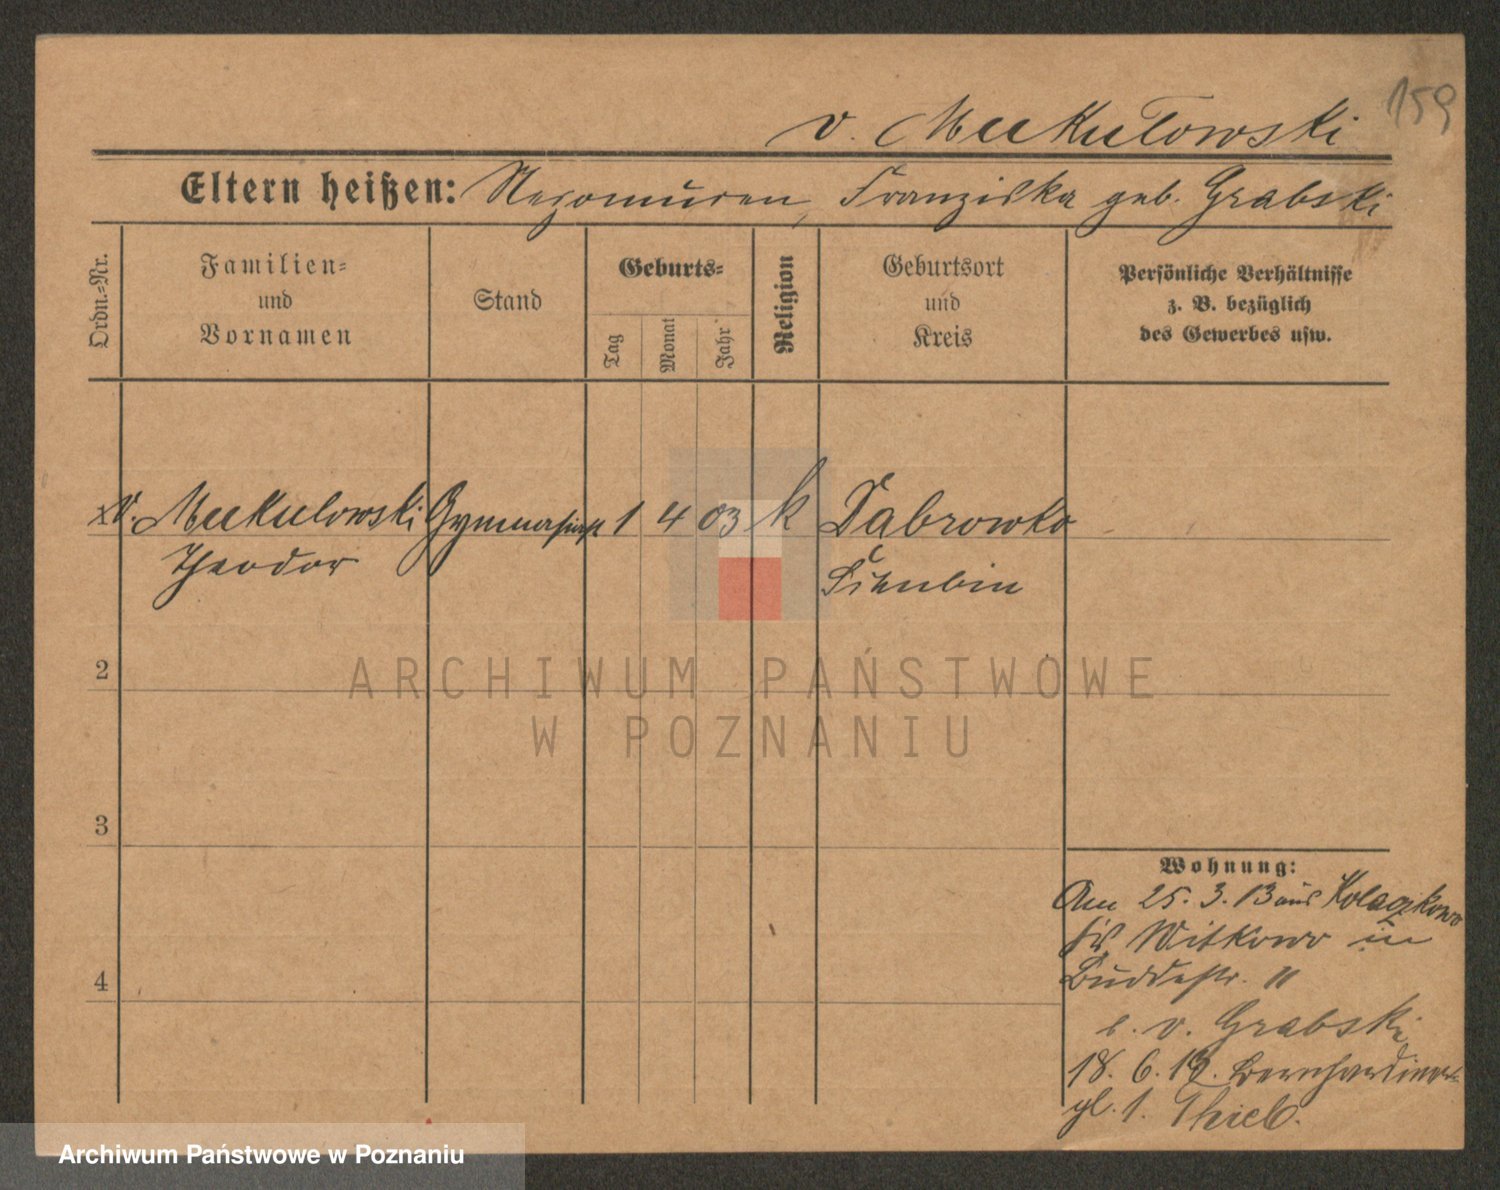 159
v. Meekulowski
Eltern heißen: Nepomucen, Franziska geb. Grabski
Ordn.=Nr.
Familien=
und
Vornamen
Stand
Geburts=
Tag
Monat
Jahr
Religion
Geburtsort
und
Kreis
Persönliche Verhältnisse
z. B. bezüglich
des Gewerbes usw.
v. Meekulowski Gymnasiast 1 4 03 k Dabrowko
Theodor Schubin
2
3
4
Wohnung:
Am 25. 3. 13 aus Kolaczkowo
Krs Witkowo in
Buddestr. 11
b. v. Grabski
18. 6. 13. Bernhardiner
pl. 1. Thiel.
ARCHIWUM PAŃSTWOWE
W POZNANIU
Archiwum Państwowe w Poznaniu